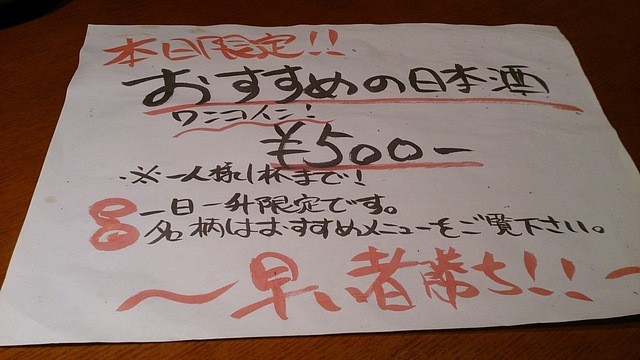 本日限定!!
おすすめの日本酒
ワンコイン!
¥500-
※一人様1杯まで!
一日一升限定です。
名柄はおすすめメニューをご覧下さい。
～早い者勝ち!!～